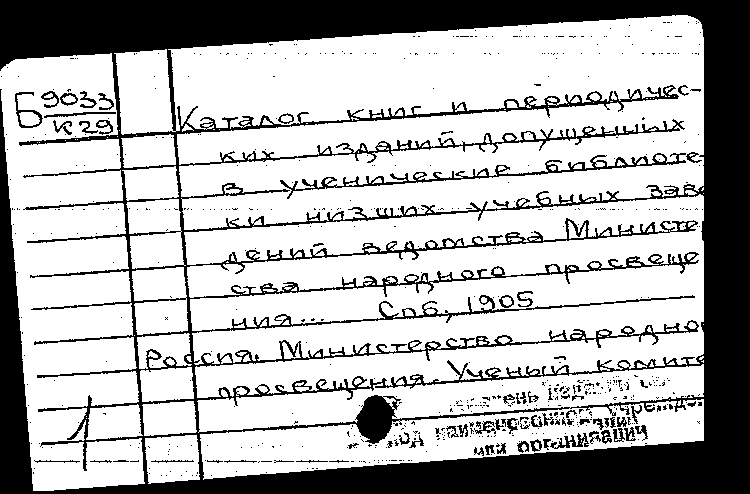 Б 9033
К29
Каталог книг и периодичес-
ких изданий, допущенных
в ученические библиоте-
ки низших учебных заве
дений ведомства Министе
ства народного просвеще
ния... Спб, 1905
Россия. Министерство народно
просвещения. Ученый комите
1
под наименованием учрежде
или организации